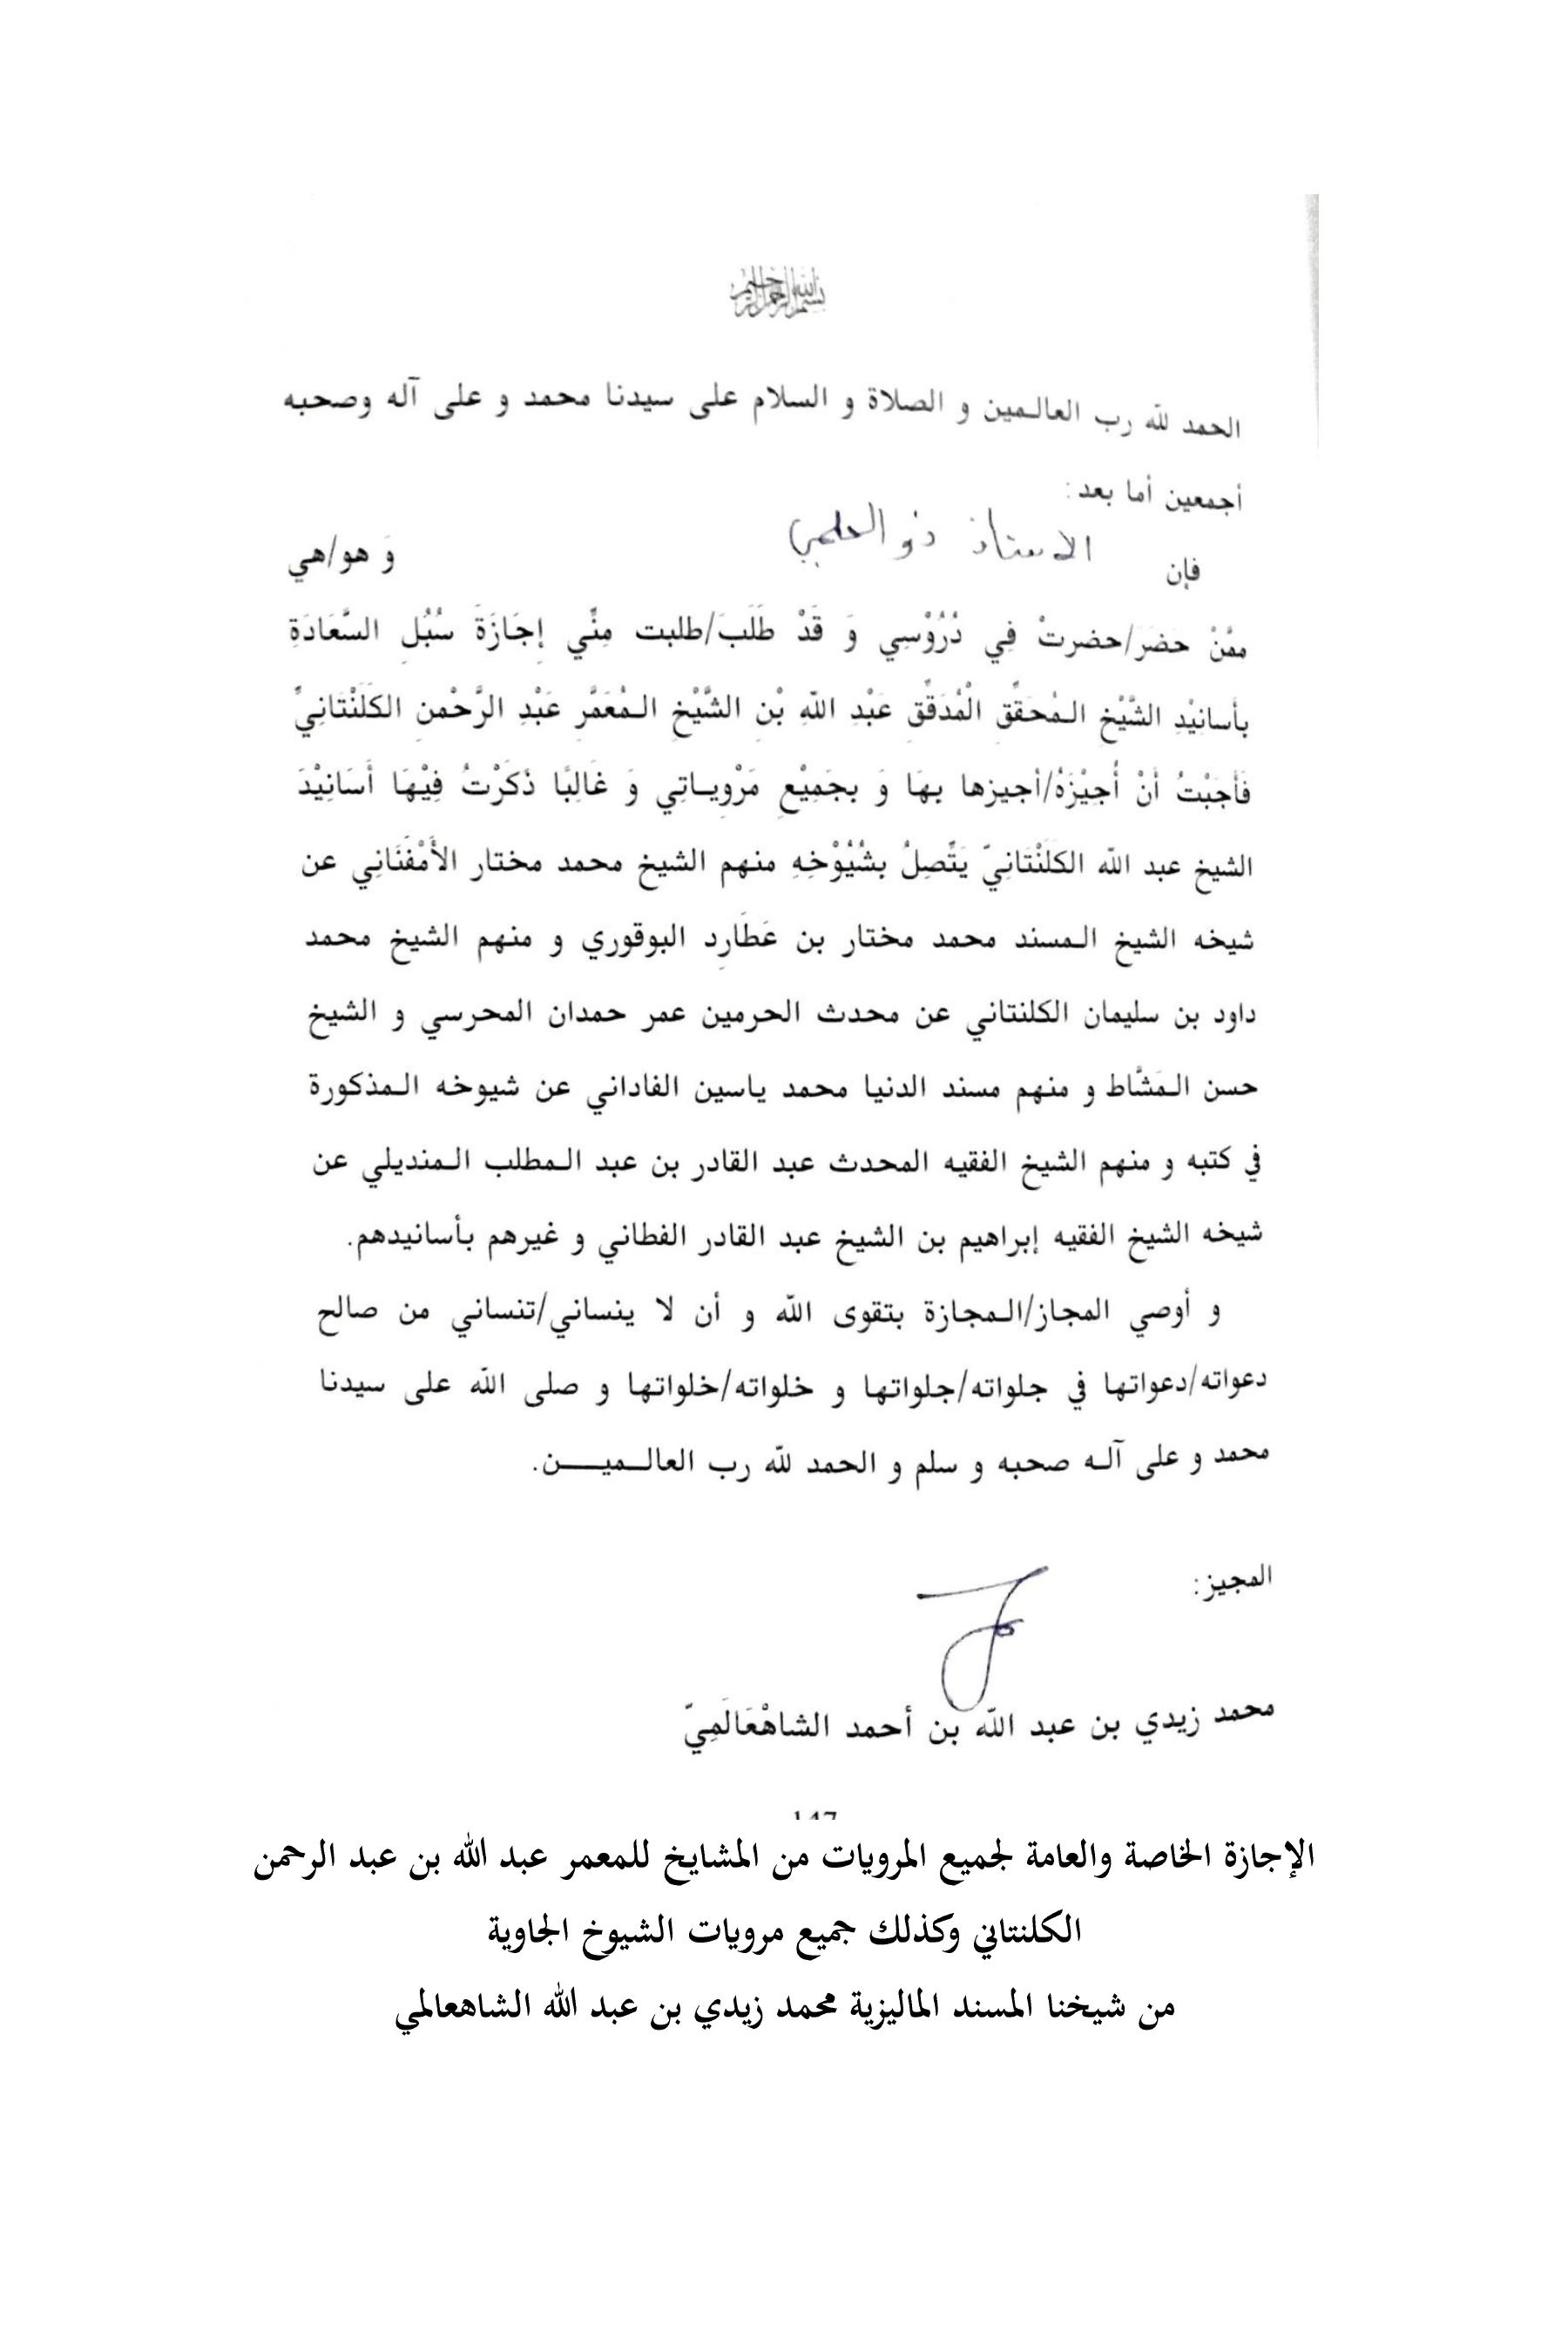 بسم الله الرحمن الرحيم
الحمد لله رب العالـمين و الصلاة و السلام على سيدنا محمد و على آله وصحبه
أجمعين أما بعد:
فإن الاستاذ ذو الحلمي وَ هو/هي
ممَّنْ حَضَرَ/حضرتْ فِي دُرُوْسِي وَ قَدْ طَلَبَ/طلبت مِنِّي إِجَازَةَ سُبُلِ السَّعَادَةِ
بأسانِيْدِ الشَّيْخِ الـمُحَقِّقِ الْمُدَقِّقِ عَبْدِ اللهِ بْنِ الشَّيْخِ الـمُعَمَّرِ عَبْدِ الرَّحْمنِ الكَلَنْتَانِيِّ
فَأَجَبْتُ أَنْ أُجِيْزَهُ/أجيزها بهَا وَ بجَمِيْعِ مَرْوِيـاتِي وَ غَالِبًا ذَكَرْتُ فِيْهَا أَسَانِيْدَ
الشيخ عبد الله الكَلَنْتَانِيّ يَتَّصِلُ بشُيُوْخِهِ منهم الشيخ محمد مختار الأَمْفَنَانِي عن
شيخه الشيخ الـمسند محمد مختار بن عَطَارِد البوقوري و منهم الشيخ محمد
داود بن سليمان الكلنتاني عن محدث الحرمين عمر حمدان المحرسي و الشيخ
حسن الـمَشَّاط و منهم مسند الدنيا محمد ياسين الفاداني عن شيوخه الـمذكورة
في كتبه و منهم الشيخ الفقيه المحدث عبد القادر بن عبد الـمطلب الـمنديلي عن
شيخه الشيخ الفقيه إبراهيم بن الشيخ عبد القادر الفطاني و غيرهم بأسانيدهم.
و أوصي المجاز/الـمجازة بتقوى الله و أن لا ينساني/تنساني من صالح
دعواته/دعواتها في جلواته/جلواتها و خلواته/خلواتها و صلى الله على سيدنا
محمد و على آلـه صحبه و سلم و الحمد لله رب العالــميــــن.
المجيز:
محمد زيدي بن عبد الله بن أحمد الشاهْعَالَمِيّ
الإجازة الخاصة والعامة لجميع المرويات من المشايخ للمعمر عبد الله بن عبد الرحمن
الكلنتاني وكذلك جميع مرويات الشيوخ الجاوية
من شيخنا المسند الماليزية محمد زيدي بن عبد الله الشاهعالمي